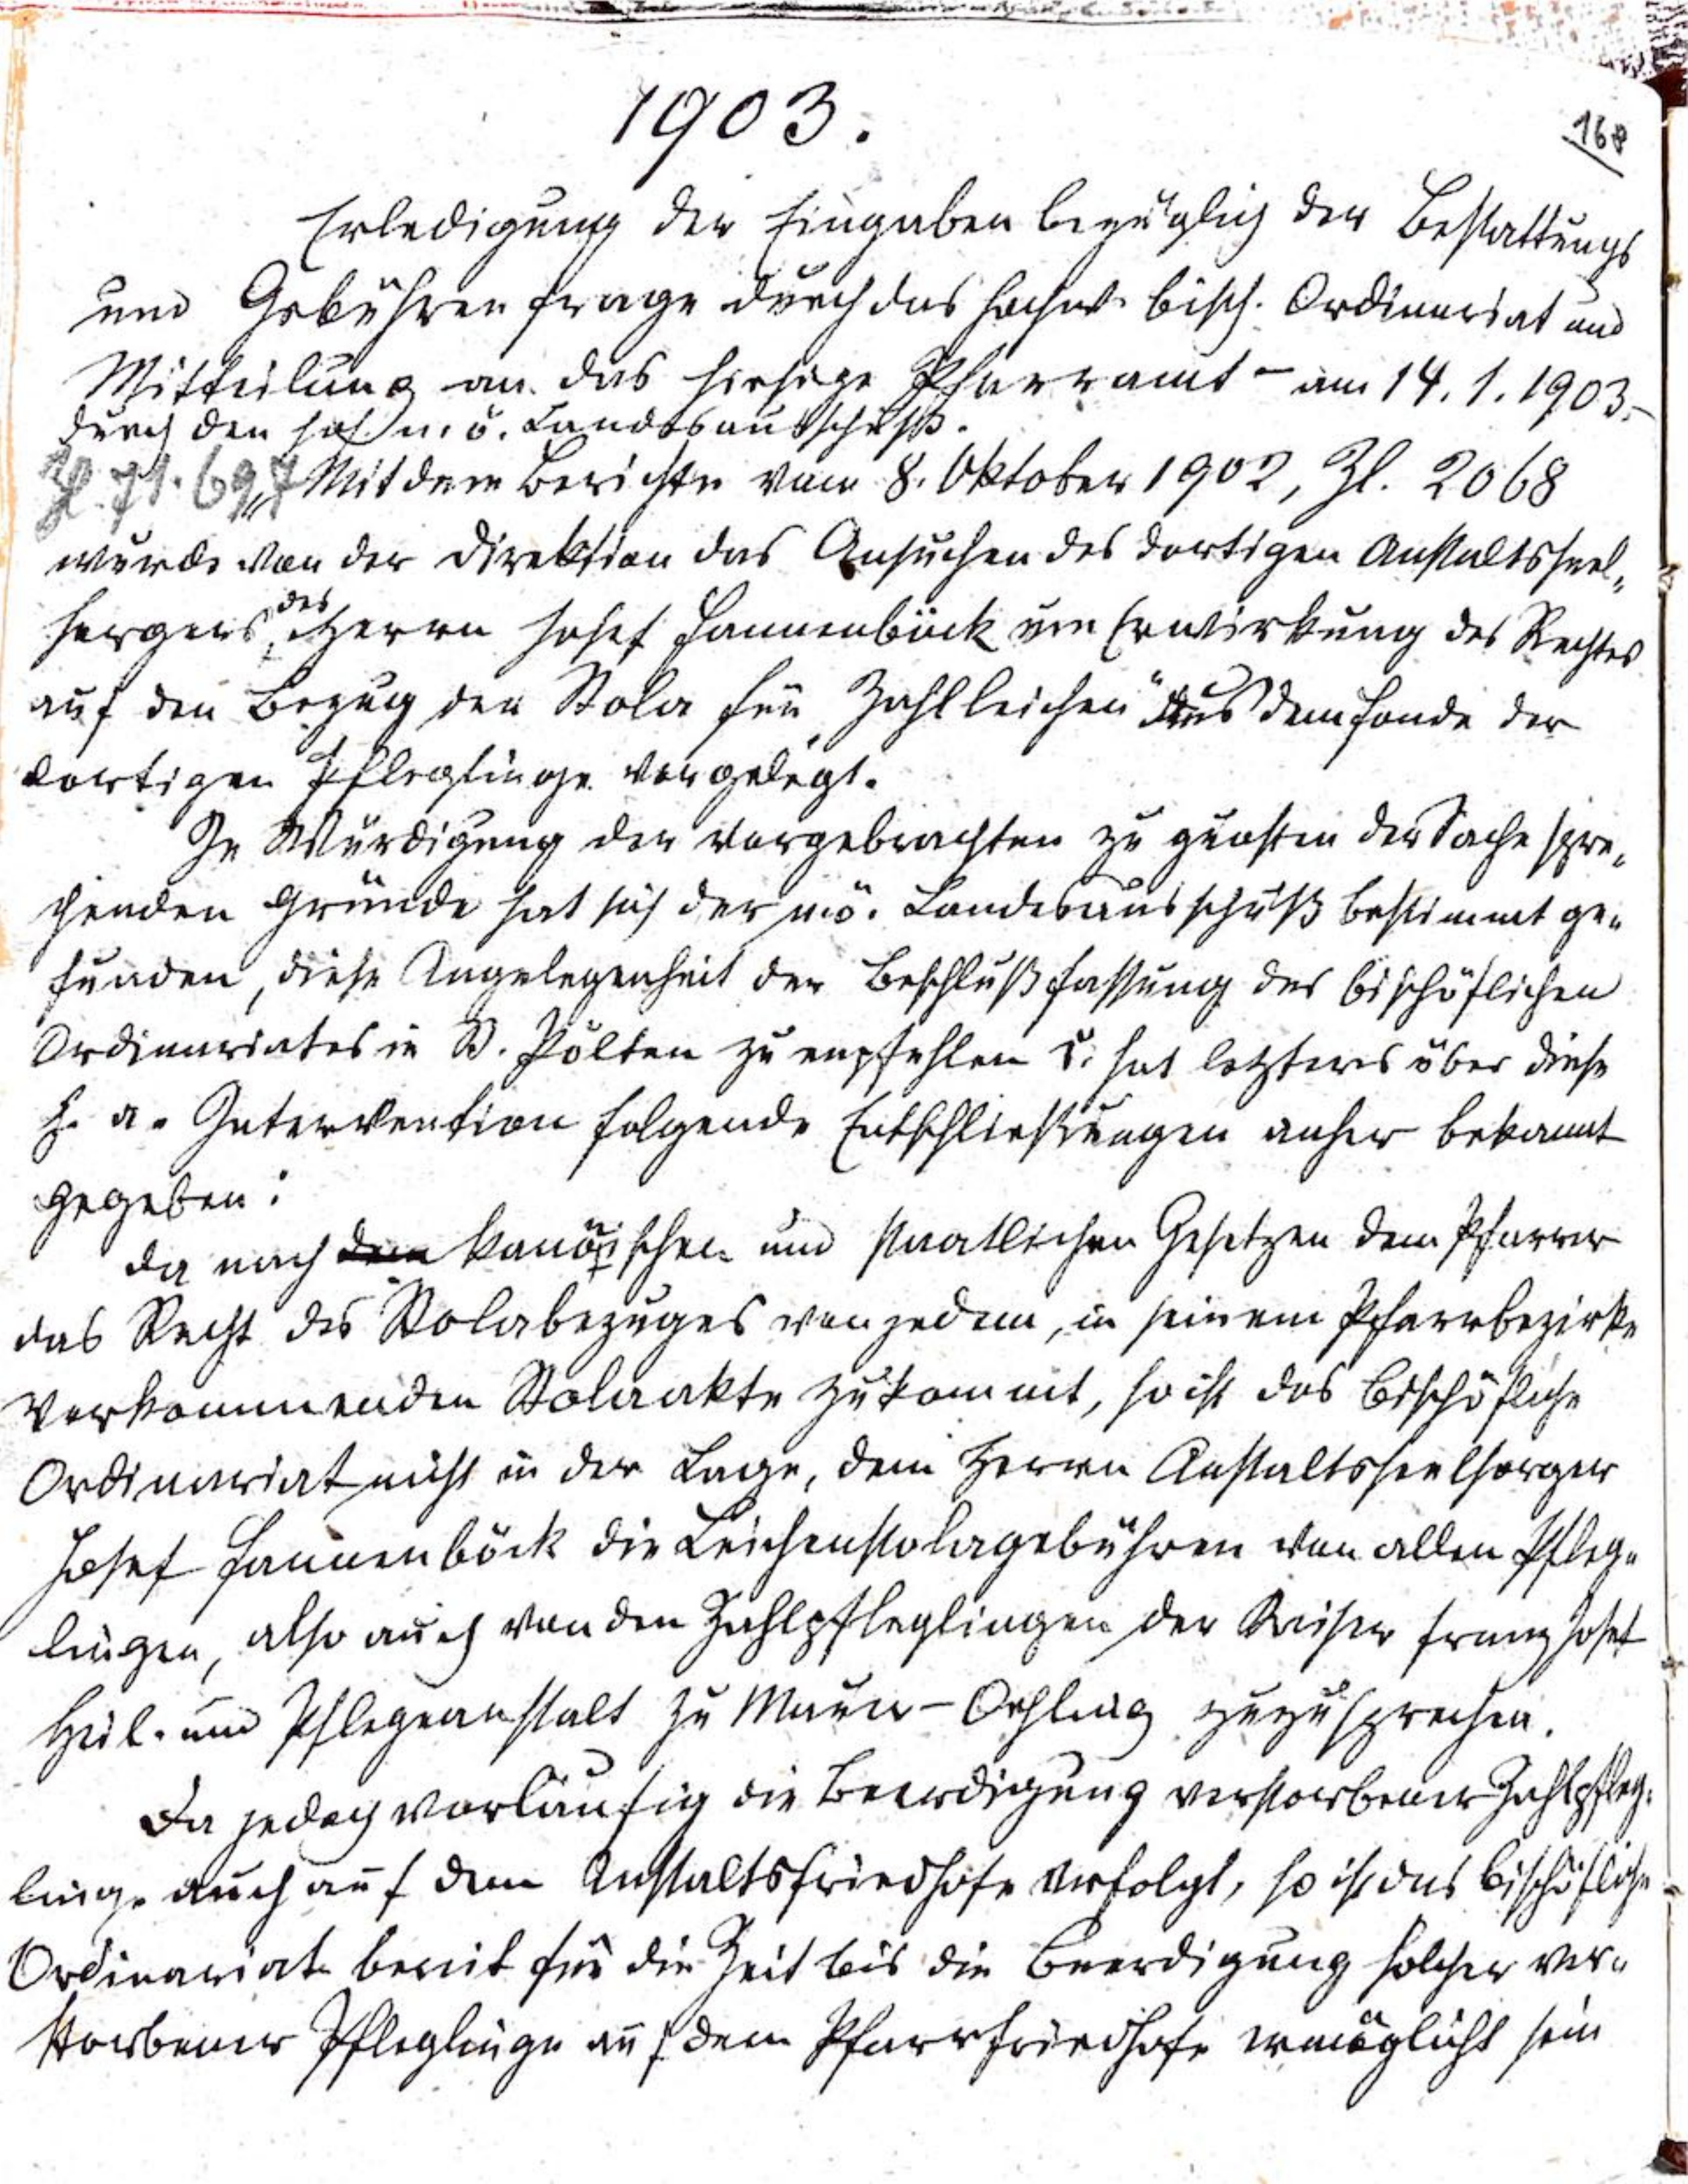 1903.
168
Erledigung der Eingaben bezüglich der Bestattungs
und Gebührenfrage durch das hochw. bisch. Ordinariat und
Mittheilung an das hiesige Pfarramt – am 14.1.1903.–
durch den hoh. n. ö. Landesausschuß.
Zl. 71.697 „Mit dem Berichte vom 8. Oktober 1902, Zl. 2068
wurde von der Direktion das Ansuchen des dortigen Anstaltsseel„
sorgers, des Herrn Josef Hammenböck um Erwirkung des Rechtes
auf den Bezug der Stola für „Zahlleichen" aus dem Stande der
dortigen Pfleglinge vorgelegt.
In Würdigung der vorgebrachten zu gunsten der Sache spre„
chenden Gründe hat sich der nö. Landesausschuß bestimmt ge„
funden, diese Angelegenheit der Beschlußfassung des bischöflichen
Ordinariates in St. Pölten zu empfehlen u. hat letzteres über diese
h. a. Intervention folgende Entschließungen anher bekannt
gegeben:
Da nach den kanonischen und staatlichen Gesetzen dem Pfarrer
das Recht des Stolabezuges von jedem, in seinem Pfarrbezirke
vorkommenden Stolaakte zukommt, so ist das bischöfliche
Ordinariat nicht in der Lage, dem Herrn Anstaltsseelsorger
Josef Hammenböck die Leichenstolagebühren von allen Pfleg„
lingen, also auch von den Zahlpfleglingen der Kaiser Franz Josef
Heil- und Pflegeanstalt zu Mauer-Oehling zuzusprechen.
Da jedoch vorläufig die Beerdigung verstorbener Zahlpfleg„
linge auch auf dem Anstaltsfriedhofe erfolgt, so ist das bischöfliche
Ordinariat bereit für die Zeit bis die Beerdigung solcher ver„
storbener Pfleglinge auf dem Pfarrfriedhofe ermöglicht sein